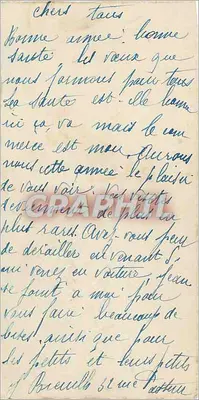 chers tous
Bonne année, bonne
santé les vœux que
nous formons pour tous
La santé est-elle bonne
ici ça va mais le com
merce est mou. Aurons
nous cette année le plaisir
de vous voir.
deviennent de plus en
plus rares. Avez-vous peur
de dérailler en venant
venez en voiture. Jean
se joint à moi pour
vous faire beaucoup de
bises, ainsi que pour
les petits et leurs petits
32 rue Pasteur
CPAPHIL